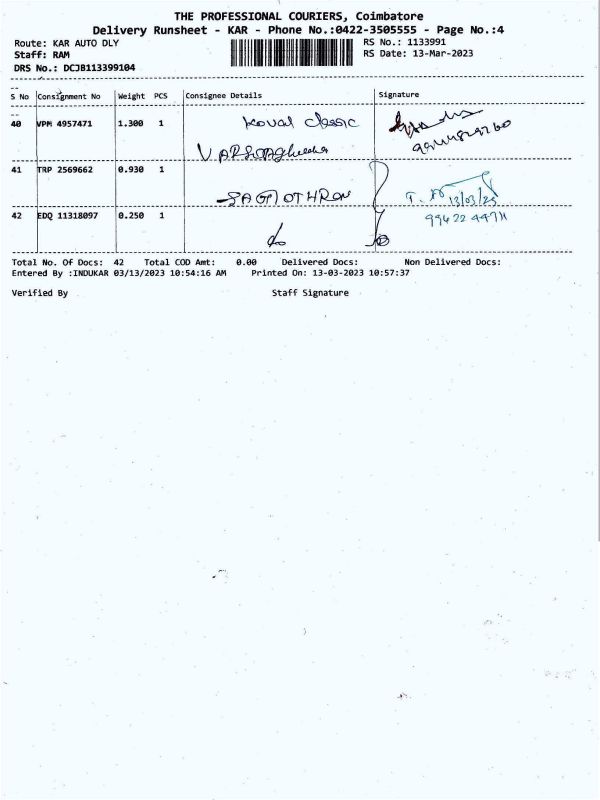 THE PROFESSIONAL COURIERS, Coimbatore
Delivery Runsheet - KAR - Phone No.:0422-3505555 - Page No.:4
Route: KAR AUTO DLY RS No.: 1133991
Staff: RAM RS Date: 13-Mar-2023
DRS No.: DCJB113399104
S No Consignment No Weight PCS Consignee Details Signature
40 VPM 4957471 1.300 1 Koval classic
41 TRP 2569662 0.930 1
13/03/23
42 EDQ 11318097 0.250 1 99422 44711
Total No. Of Docs: 42 Total COD Amt: 0.00 Delivered Docs: Non Delivered Docs:
Entered By :INDUKAR 03/13/2023 10:54:16 AM Printed On: 13-03-2023 10:57:37
Verified By Staff Signature